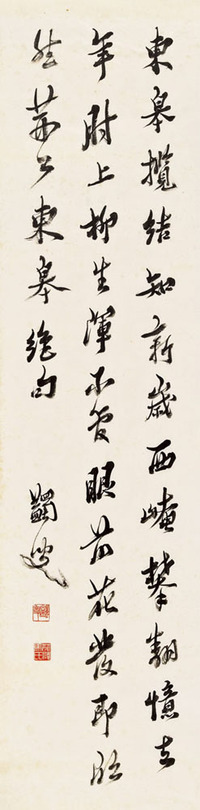 東皋攬結知新歲西崦攀翻憶去
年肘上柳生渾不管眼前花發即欣
然荊公東皋絕句
蠲叟